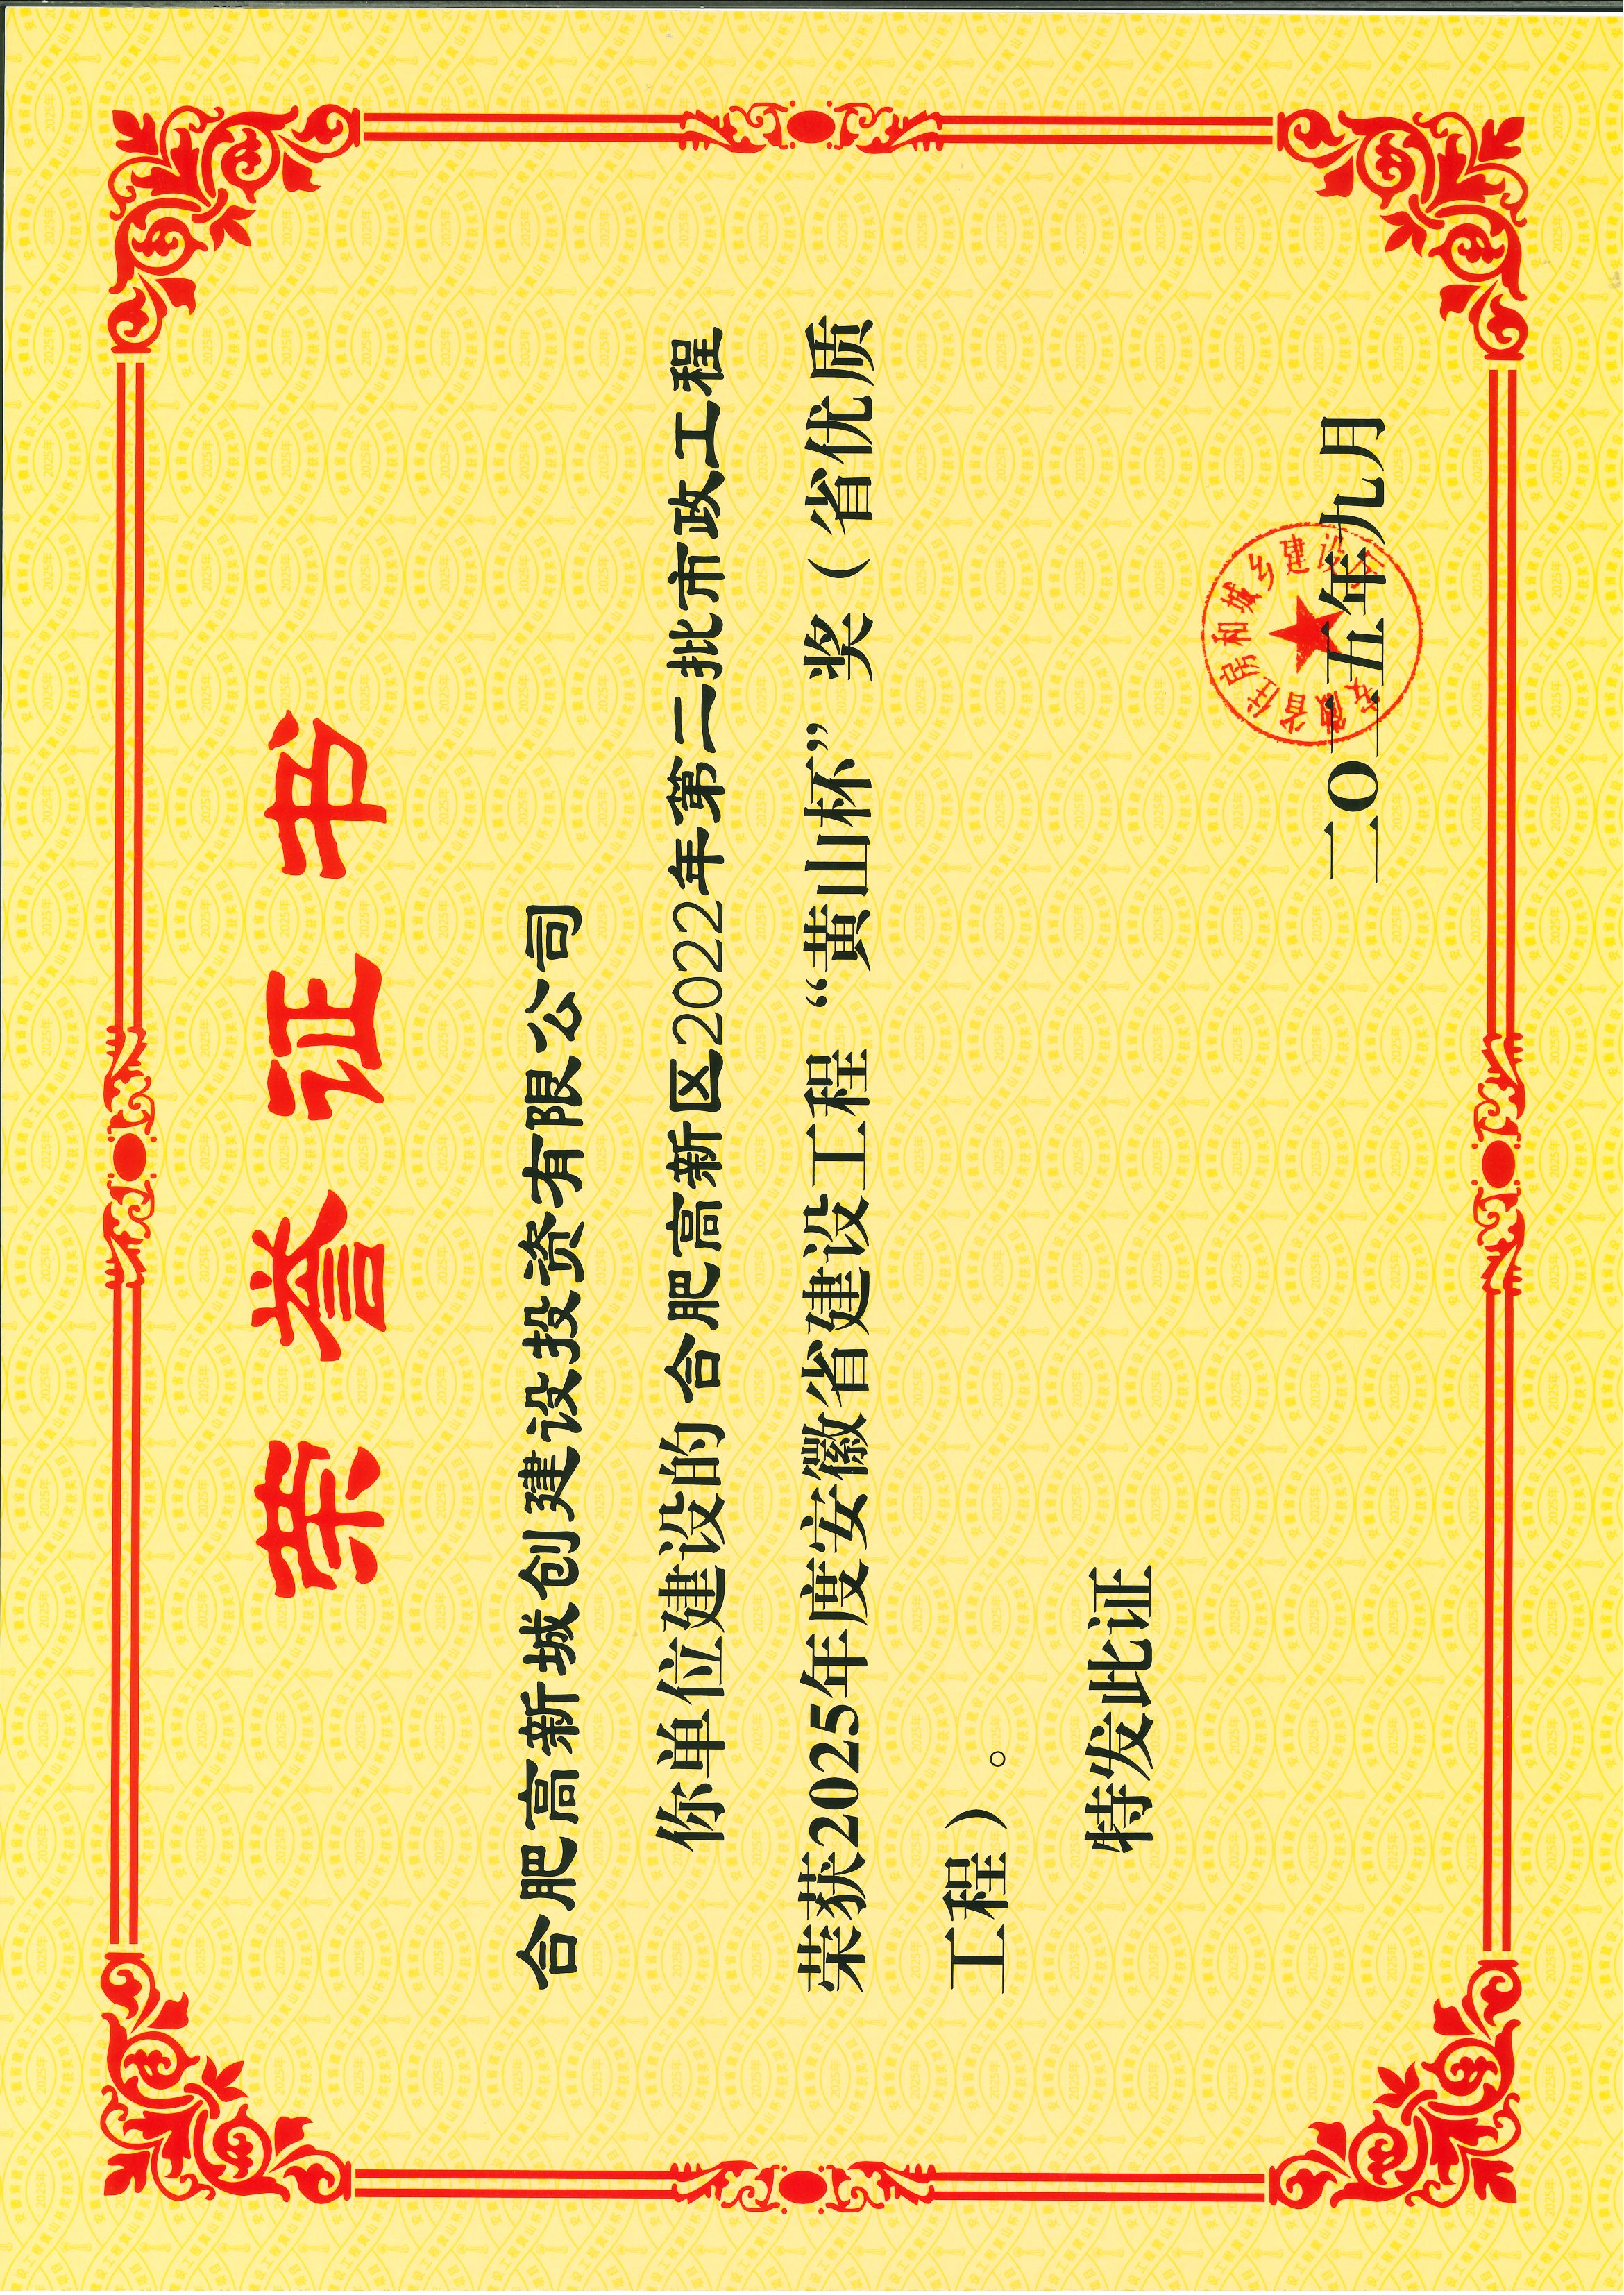 荣誉证书
合肥高新城创建设投资有限公司
你单位建设的 合肥高新区2022年第二批市政工程
荣获2025年度安徽省建设工程“黄山杯”奖（省优质
工程）。
特发此证
安徽省住房和城乡建设厅
二〇二五年九月